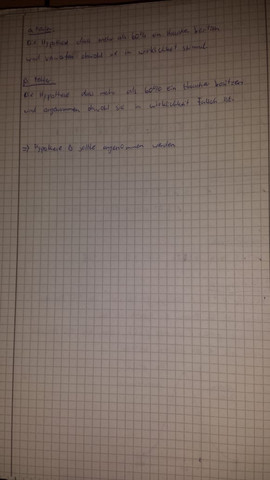 α Fehler:
Die Hypothese dass mehr als die Hälfte ein Haustier besitzen
wird verworfen obwohl es in wirklichkeit stimmt.
β Fehler:
Die Hypothese dass mehr als Hälfte ein Haustier besitzen
wird angenommen obwohl sie in wirklichkeit falsch ist.
=> Hypothese sollte angenommen werden